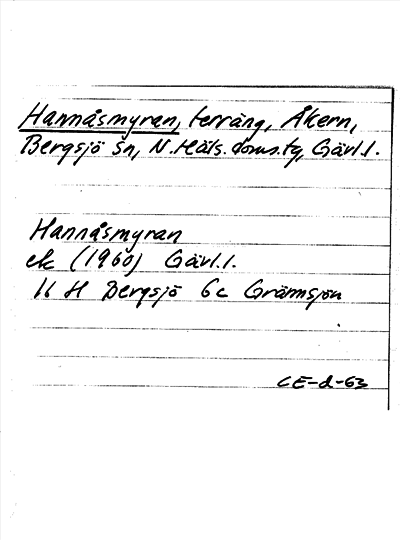 Hannåsmyran, terräng, Åkern,
Bergsjö sn, N. Häls. doms.ty, Gävl.l.
Hannåsmyran
ek (1960) Gävl.l.
16 H Bergsjö 6c Grämsjön
CE-d-63